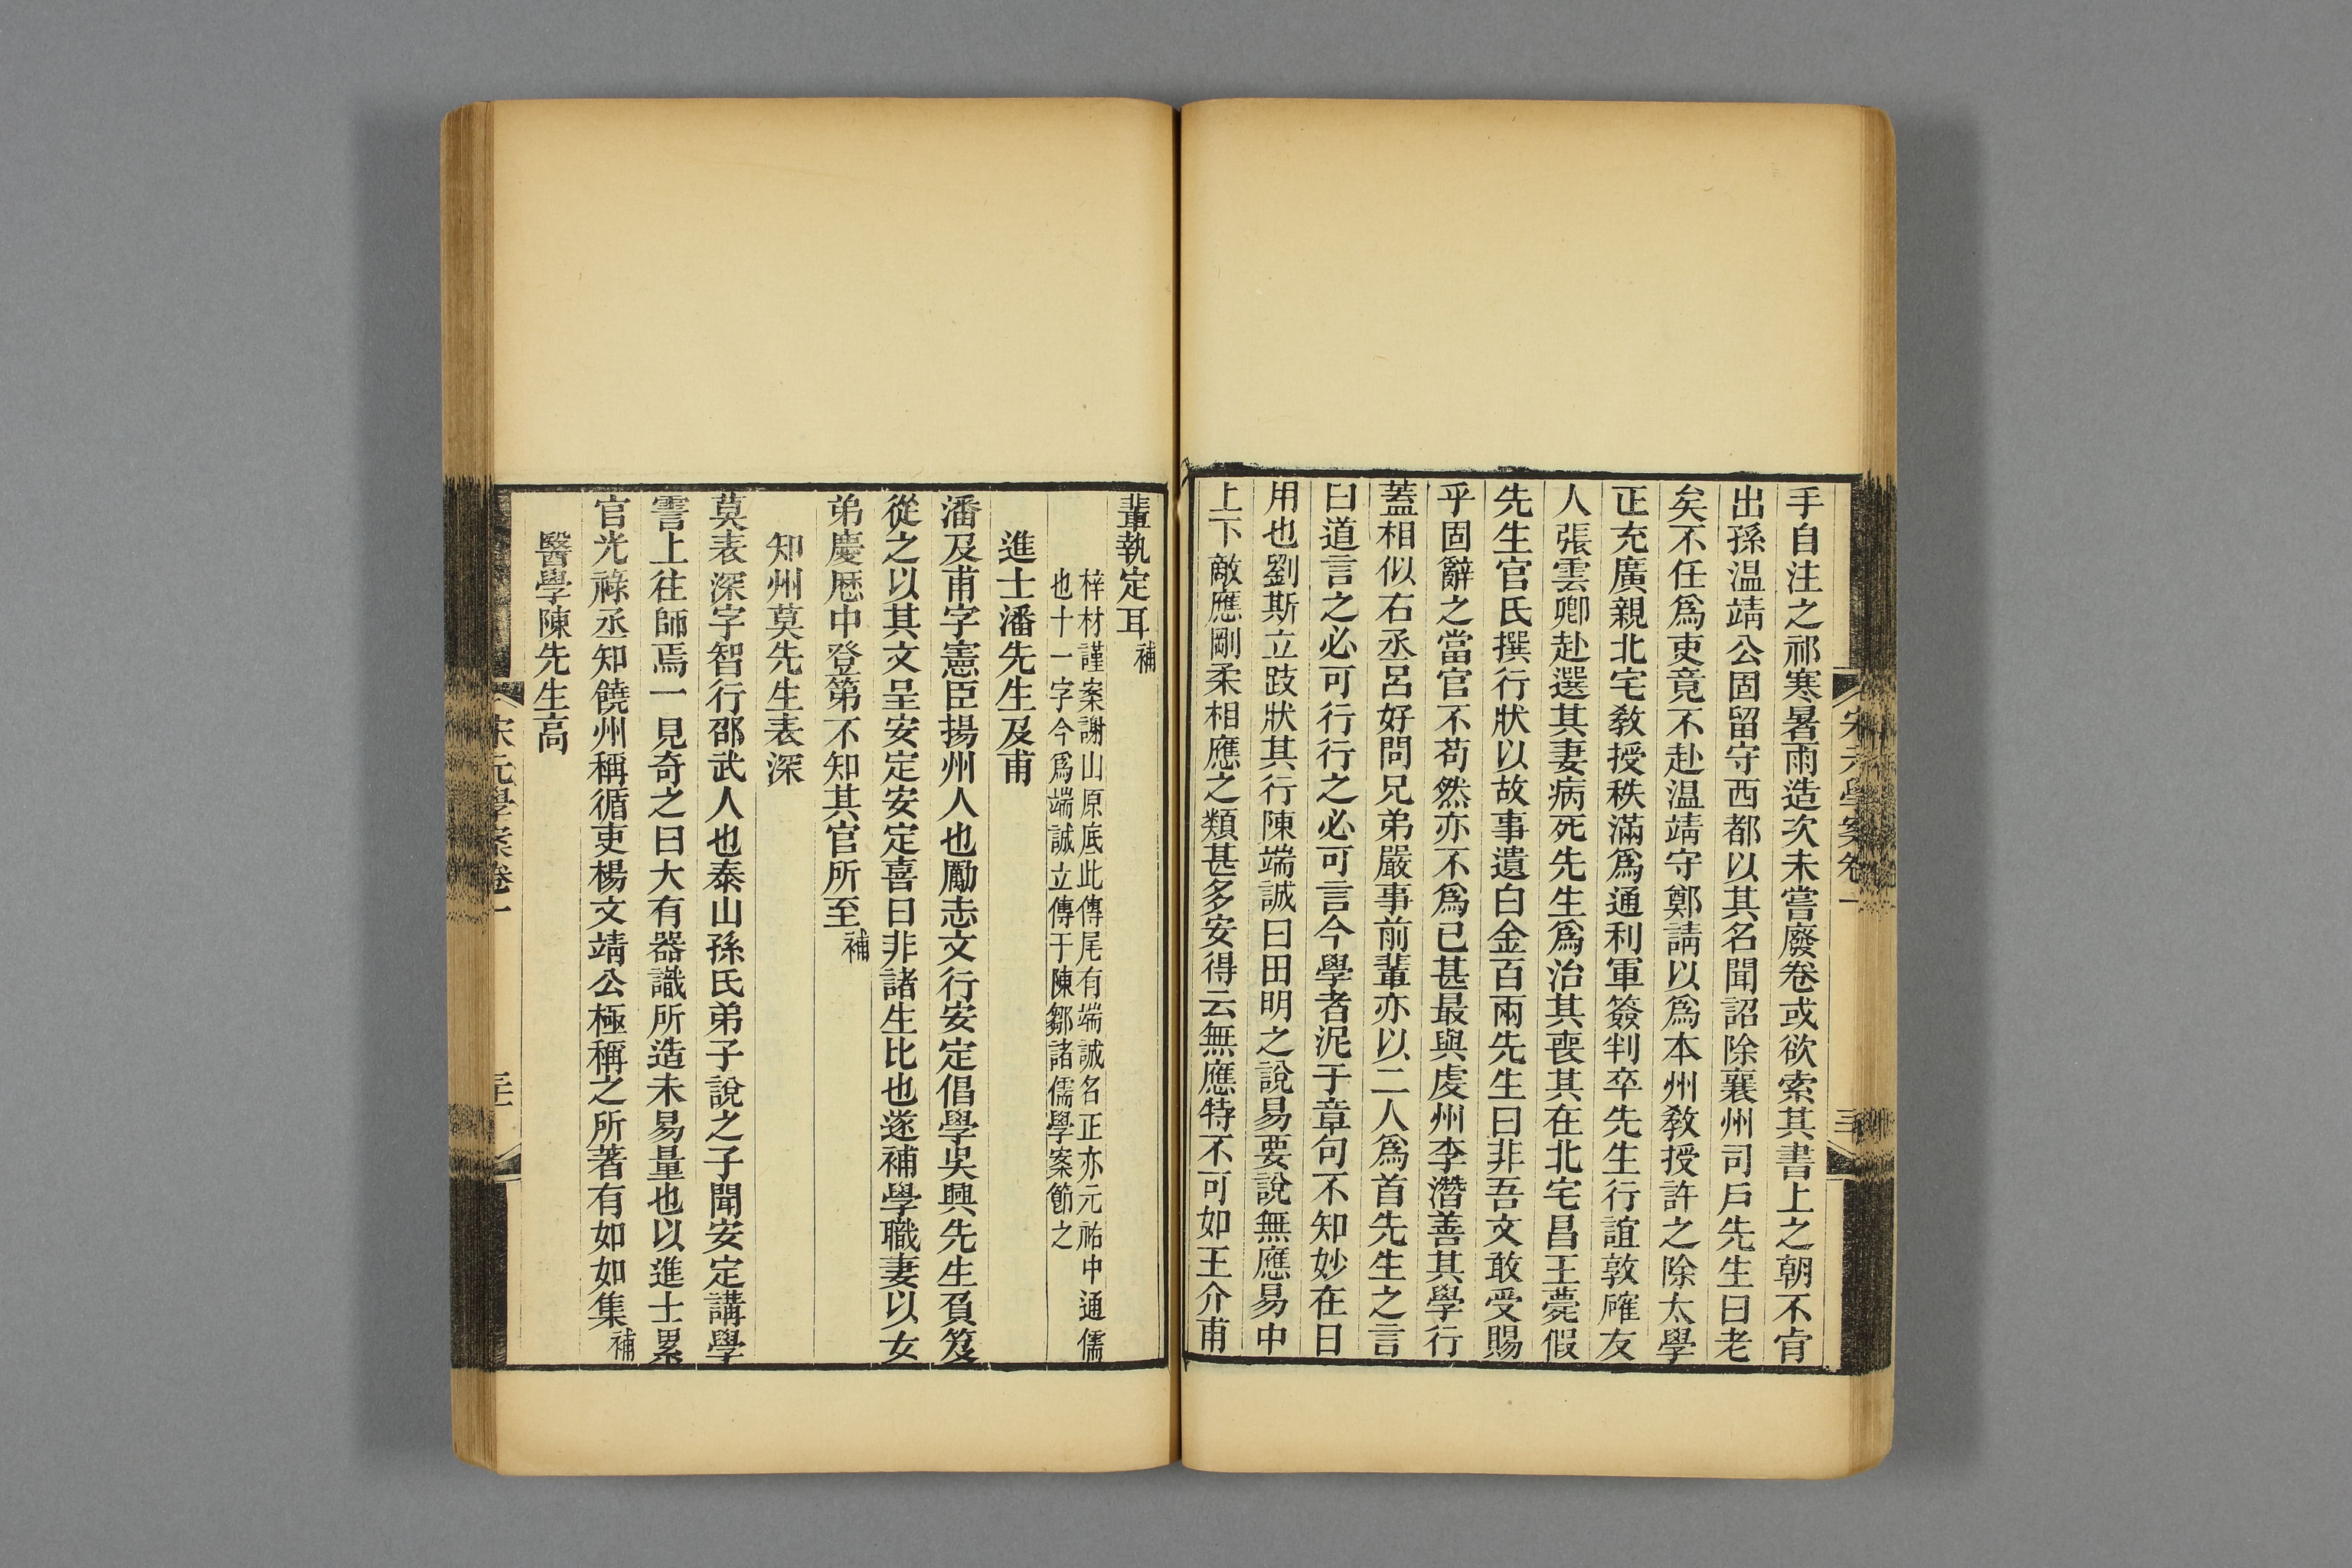 手自注之祁寒暑雨造次未嘗廢卷或欲索其書上之朝不肯
出孫温靖公固留守西都以其名聞詔除襄州司戶先生曰老
矣不任爲吏竟不赴温靖守鄭請以爲本州敎授許之除太學
正充廣親北宅敎授秩滿爲通利軍簽判卒先生行誼敦確友
人張雲卿赴選其妻病死先生爲治其喪其在北宅昌王薨假
先生官氏撰行狀以故事遺白金百兩先生曰非吾文敢受賜
乎固辭之當官不苟然亦不爲已甚最與虔州李潛善其學行
蓋相似右丞呂好問兄弟嚴事前輩亦以二人爲首先生之言
曰道言之必可行行之必可言今學者泥于章句不知妙在日
用也劉斯立跂狀其行陳端誠曰田明之說易要說無應易中
上下敵應剛柔相應之類甚多安得云無應特不可如王介甫
輩執定耳補
梓材謹案謝山原底此傳尾有端誠名正亦元祐中通儒
也十一字今爲端誠立傳于陳鄒諸儒學案節之
進士潘先生及甫
潘及甫字憲臣揚州人也勵志文行安定倡學吳興先生負笈
從之以其文呈安定安定喜曰非諸生比也遂補學職妻以女
弟慶厯中登第不知其官所至補
知州莫先生表深
莫表深字智行邵武人也泰山孫氏弟子說之子聞安定講學
霅上往師焉一見奇之曰大有器識所造未易量也以進士累
官光祿丞知饒州稱循吏楊文靖公極稱之所著有如如集補
醫學陳先生高
宋元學案卷一